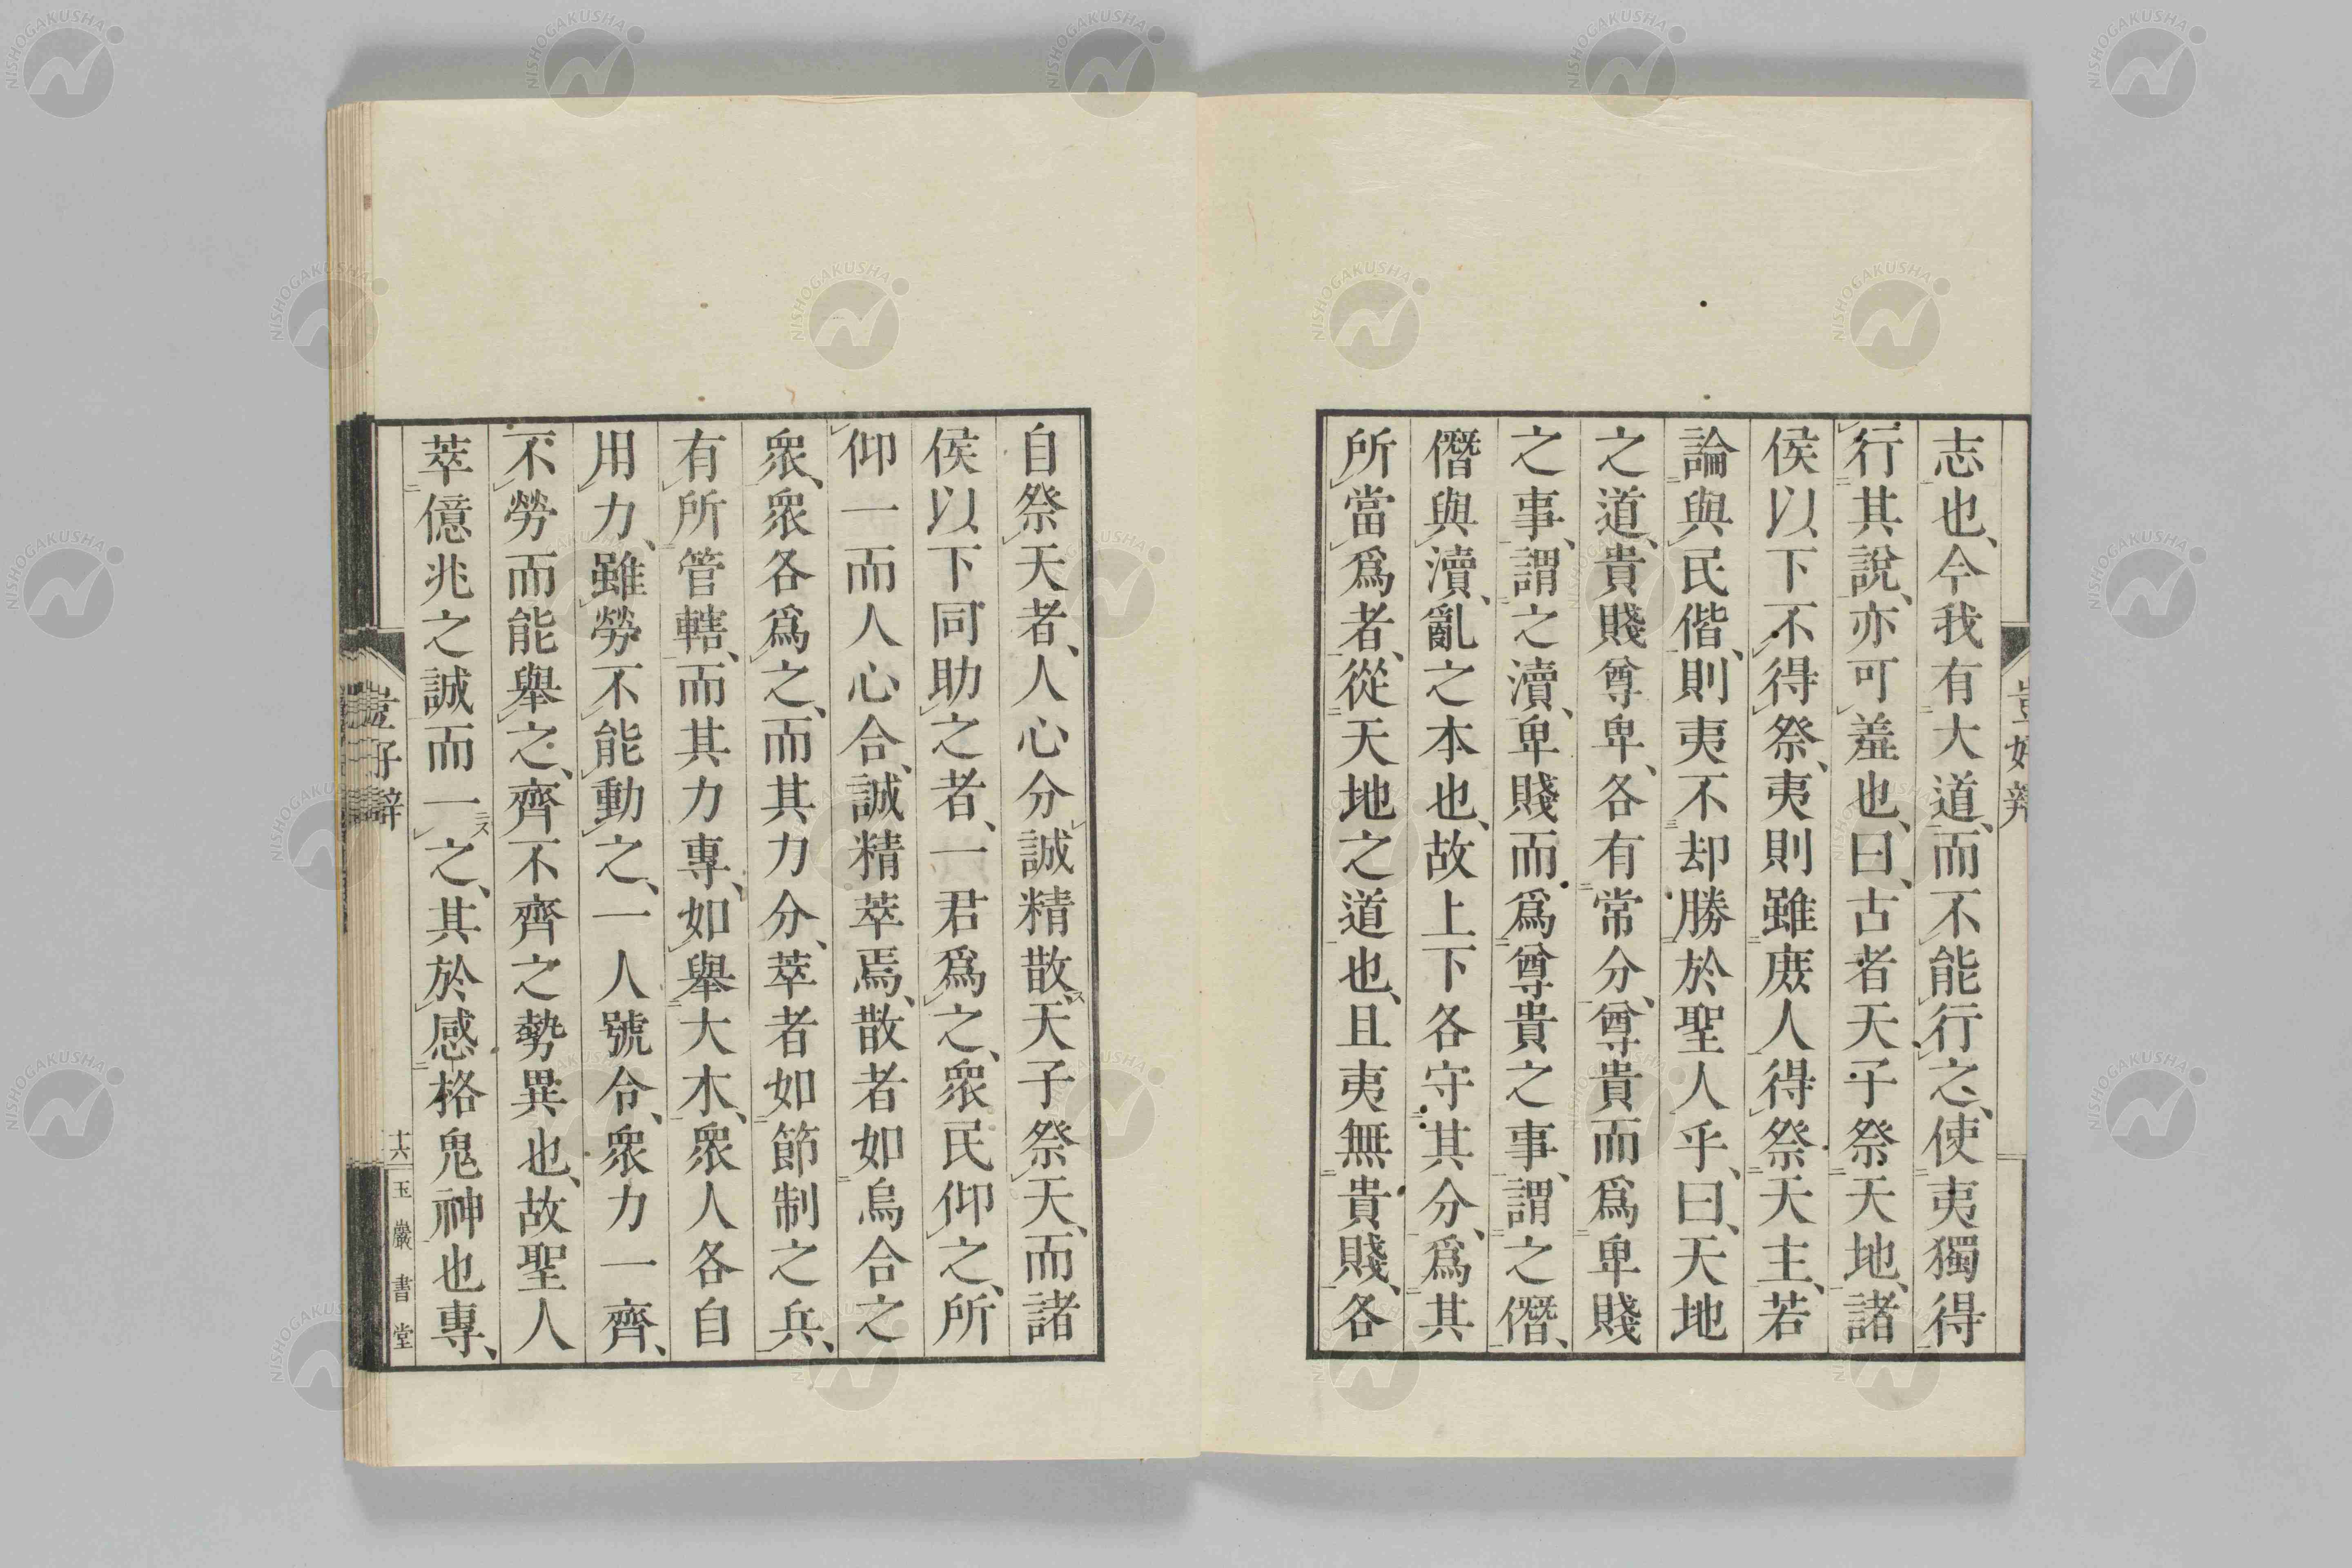 志也、今我有大道、而不能行之、使夷獨得
行其說、亦可羞也、曰、古者天子祭天地、諸
侯以下不得祭、夷則雖庶人得祭天主、若
論與民偕、則夷不却勝於聖人乎、曰、天地
之道、貴賤尊卑、各有常分、尊貴而爲卑賤
之事、謂之瀆、卑賤而爲尊貴之事、謂之僭、
僭與瀆、亂之本也、故上下各守其分、爲其
所當爲者、從天地之道也、且夷無貴賤、各
自祭天者、人心分誠精散、天子祭天、而諸
侯以下同助之者、一君爲之、衆民仰之、所
仰一而人心合、誠精萃焉、散者如烏合之
衆、衆各爲之、而其力分、萃者如節制之兵、
有所管轄、而其力專、如舉大木、衆人各自
用力、雖勞不能動之、一人號令、衆力一齊、
不勞而能舉之、齊不齊之勢異也、故聖人
萃億兆之誠而一之、其於感格鬼神也專、
十六
玉巖書堂
NISHOGAKUSHA